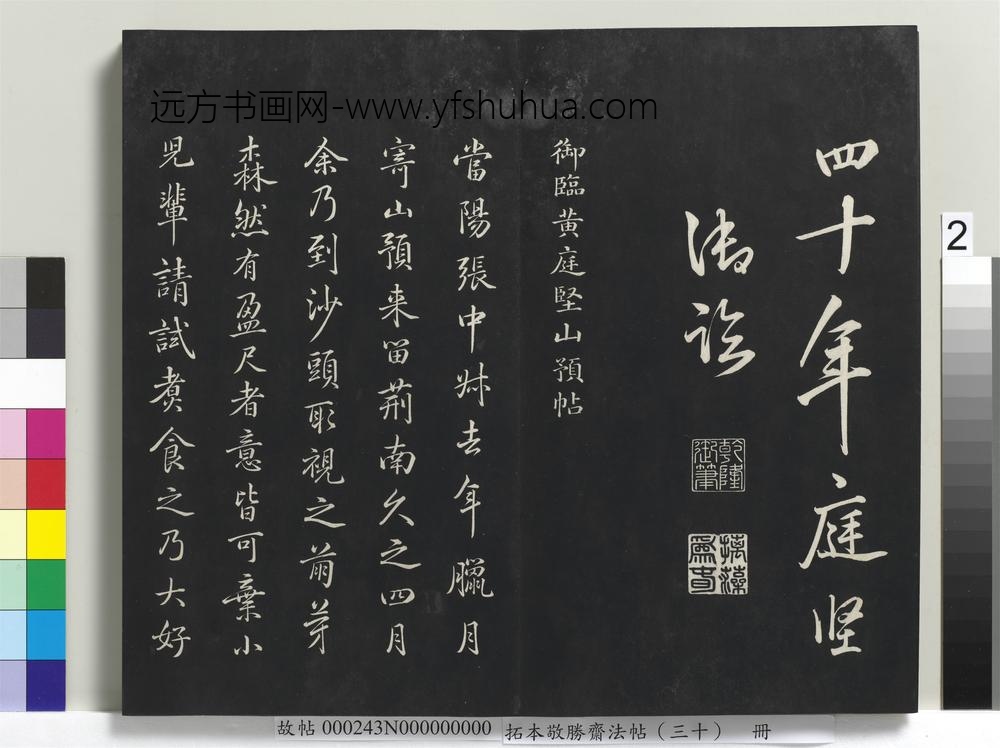 远方书画网-www.yfshuhua.com
四十年庭坚
御臨
乾隆御筆
御臨黃庭堅山預帖
當陽張中叔去年臘月
寄山預来留荆南久之四月
余乃到沙頭取視之萠芽
森然有盈尺者意皆可棄小
児輩請試煑食之乃大好
2
故帖 000243N000000000 拓本敬勝齋法帖（三十） 冊